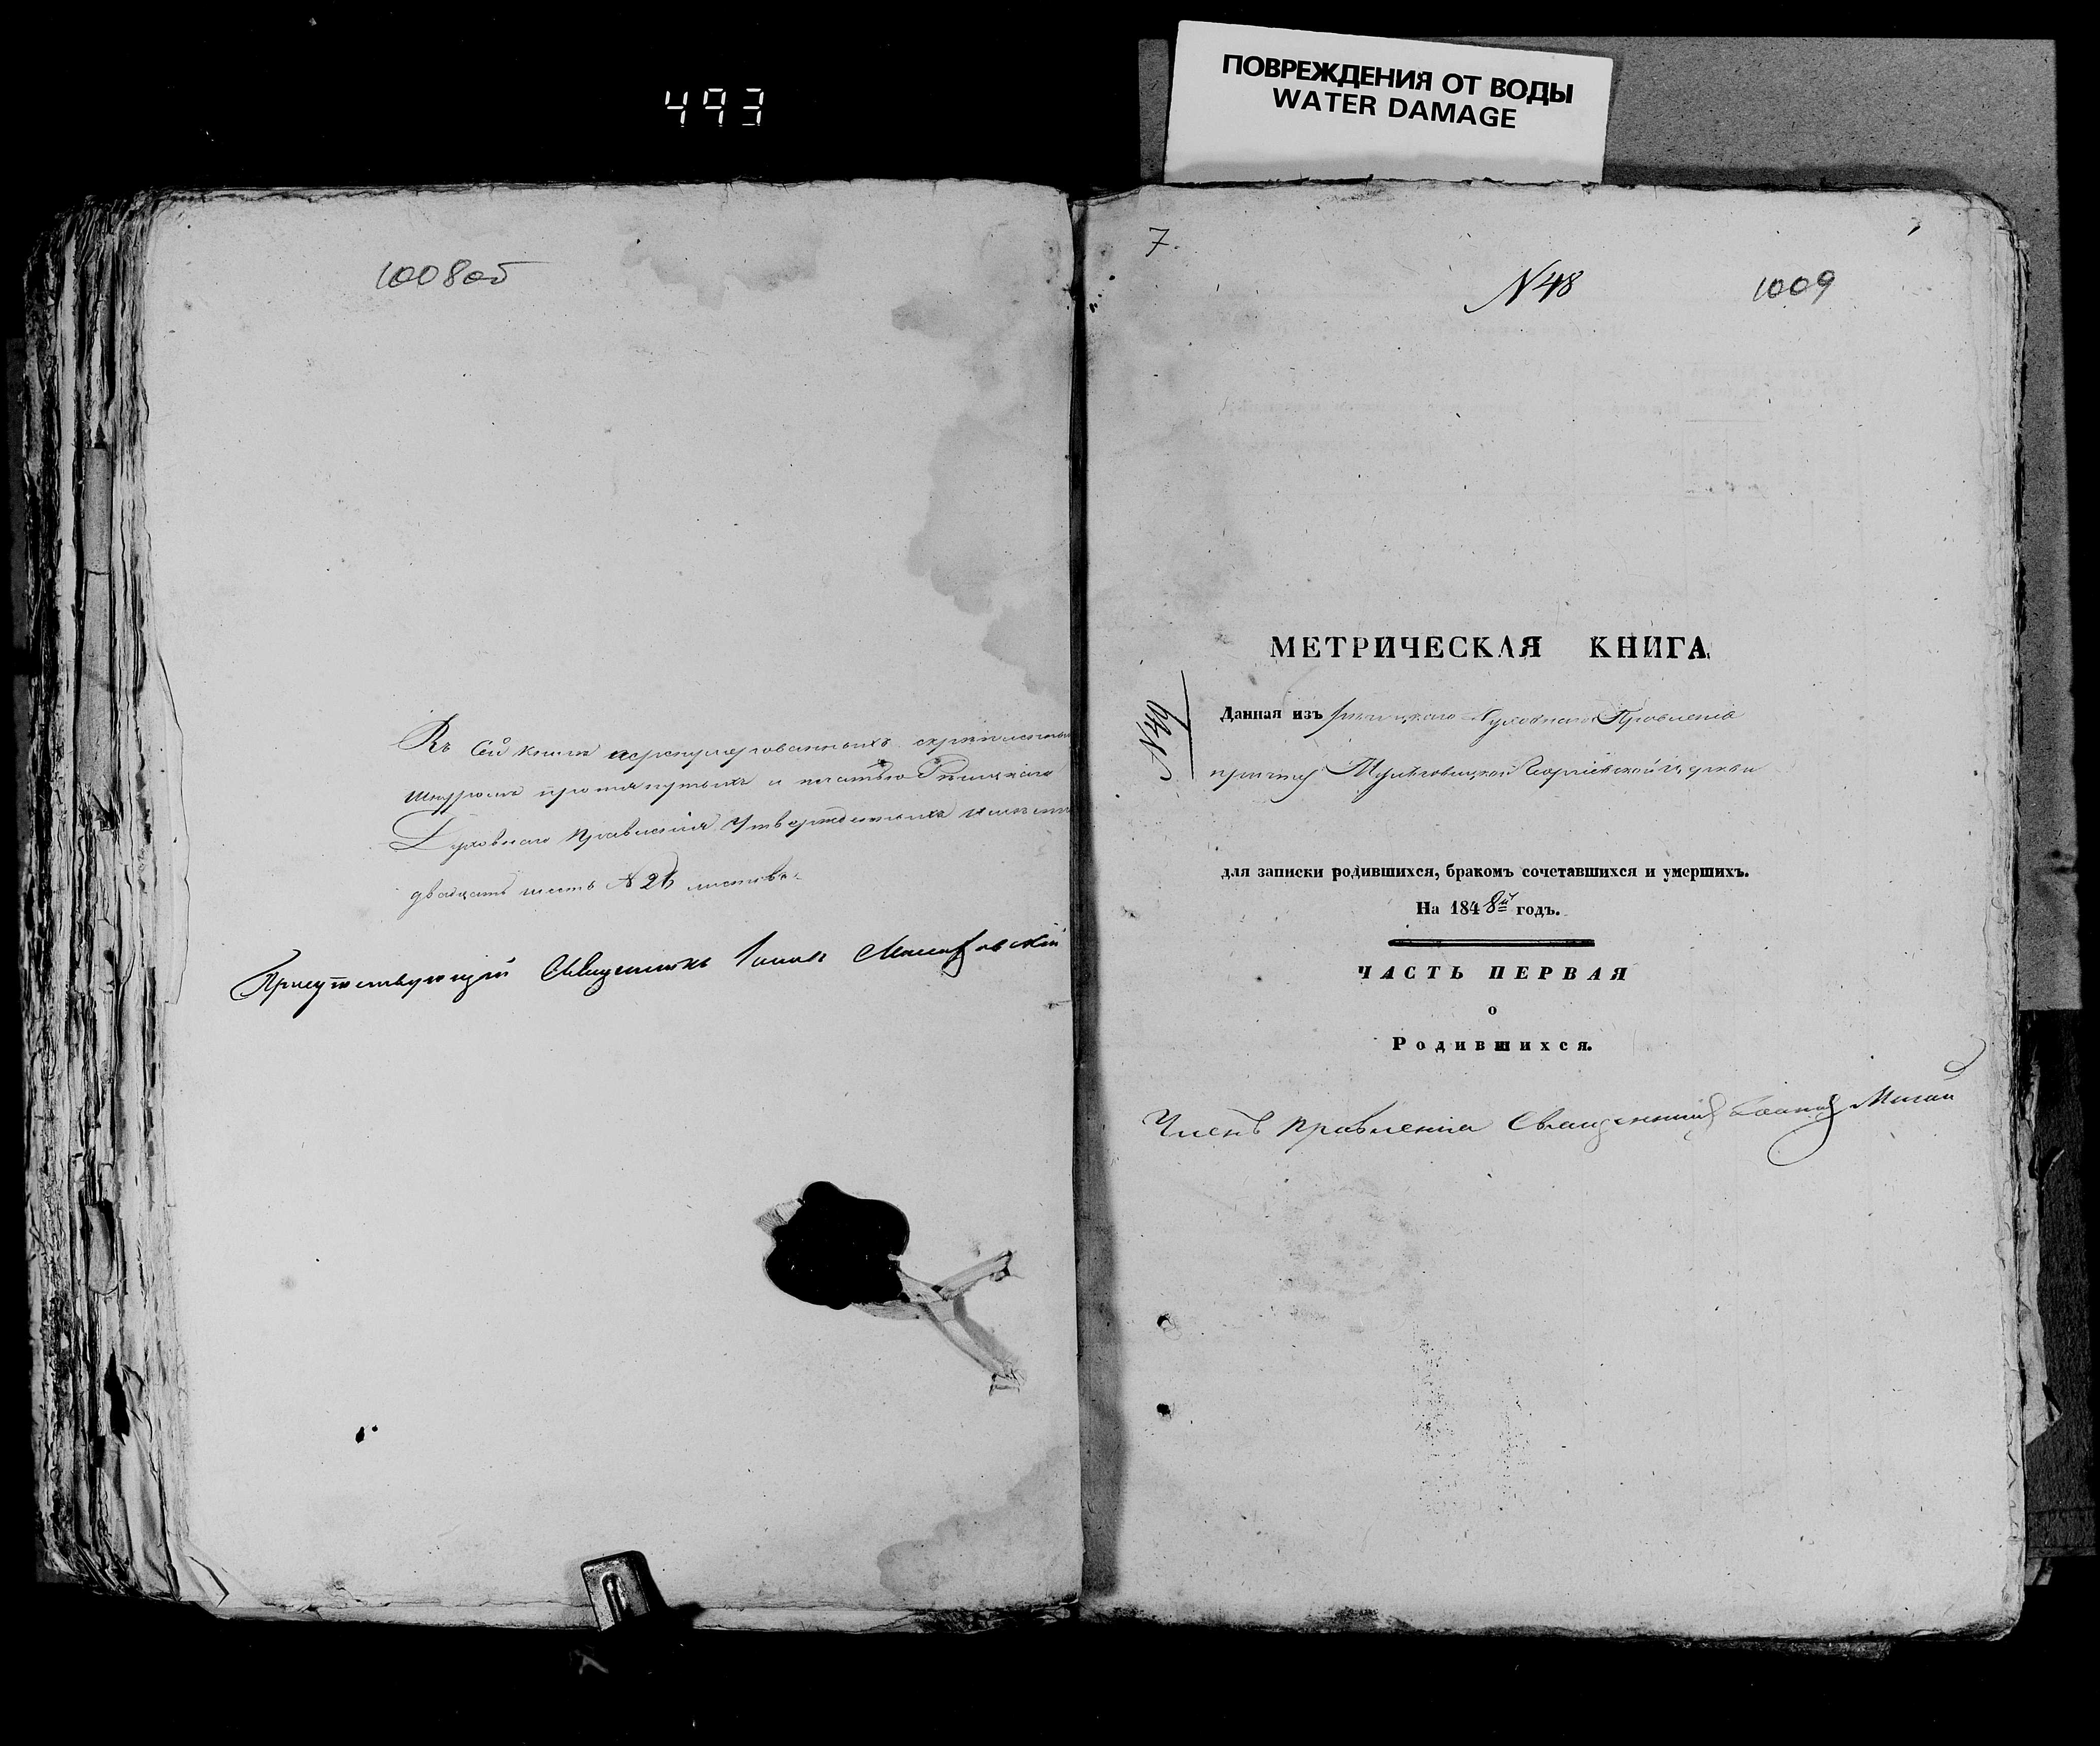 493
ПОВРЕЖДЕНИЯ ОТ ВОДЫ
WATER DAMAGE
1008об
Въ сей книгѣ перенумерованныхъ скрѣпленныхъ
шнуромъ протянутыхъ и печатью Рѣчицкаго
Духовнаго Правленія утвержденныхъ
двадцать шесть № 26 листовъ.
Присутствующій Священникъ
7.
N 48
1009
МЕТРИЧЕСКАЯ КНИГА,
N 49
Данная изъ Рѣчицкаго Духовнаго Правленія
причту Георгіевской церкви
для записки родившихся, бракомъ сочетавшихся и умершихъ.
На 1848й годъ.
ЧАСТЬ ПЕРВАЯ
о
Родившихся.
Членъ Правленія Священникъ Іоаннъ